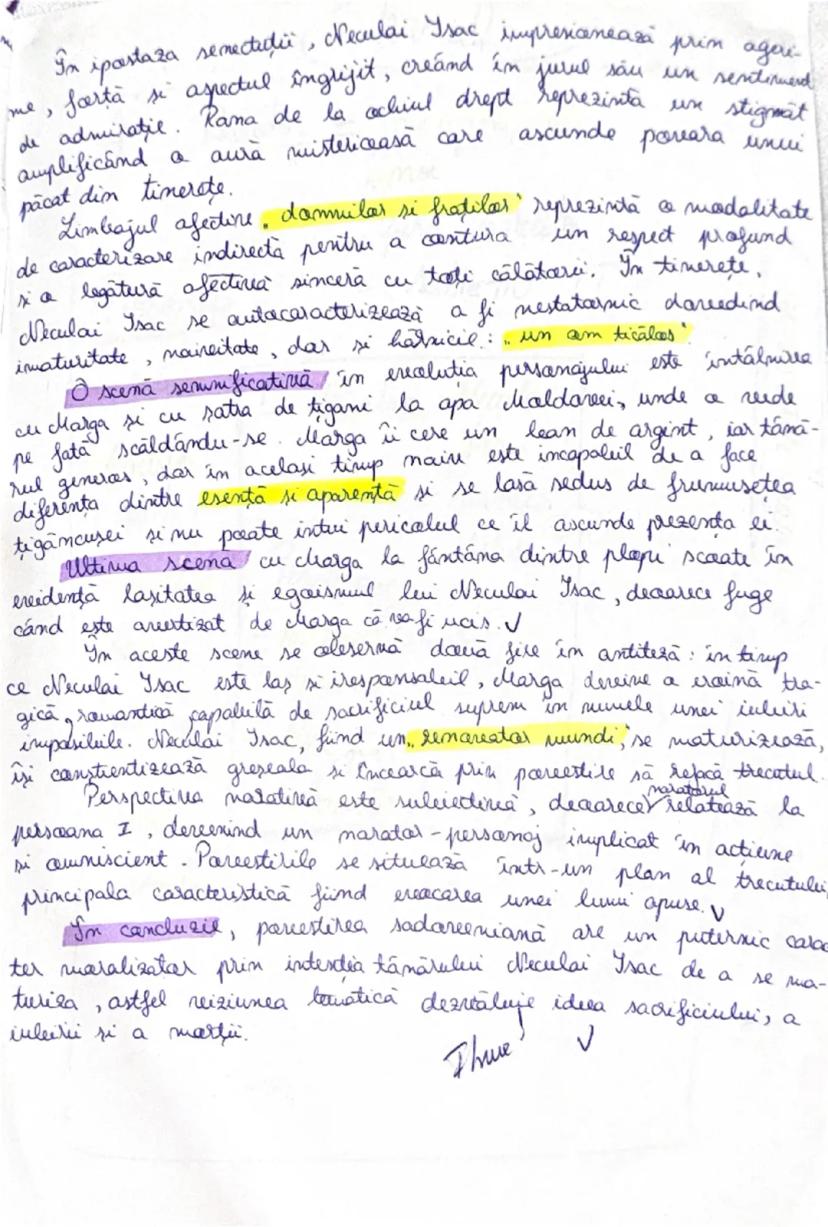 În ipostaza senectuții, Neculai Isac impresionează prin ageri-
me, forță si aspectul îngrijit, creând în jurul său un sentiment
de admirație. Rana de la ochiul drept reprezintă un stigmat
amplificând o aură misterioasă care ascunde povara unui
păcat din tinerețe.
Limbajul afectiv „domnilor si fraților” reprezintă o modalitate
de caracterizare indirectă pentru a contura un respect profund
și o legătură afectivă sinceră cu toți călătorii. În tinerețe,
Neculai Isac se autocaracterizează a fi nestatornic dovedind
imaturitate, naivitate, dar si hărnicie: „un om ticălos”
O scenă semnificativă în evoluția personajului este întâlnirea
cu Marga si cu satra de țigani la apa Moldovei, unde o vede
pe fată scăldându-se. Marga îi cere un ban de argint, iar tână-
rul generos, dar în acelasi timp naiv este incapabil de a face
diferența dintre esență si aparență si se lasă sedus de frumusețea
țigăncusei si nu poate intui pericolul ce îl ascunde prezența ei.
Ultima scenă cu Marga la fântâna dintre plopi scoate în
evidență lasitatea și egoismul lui Neculai Isac, deoarece fuge
când este avertizat de Marga că va fi ucis. √
În aceste scene se observă două fire în antiteză: în timp
ce Neculai Isac este laș si iresponsabil, Marga devine o eroină tra-
gică, romantică capabilă de sacrificiul suprem în numele unei iubiri
imposibile. Neculai Isac, fiind un „remoreator mundi”, se maturizează,
își conștientizează greșeala si încearcă prin povestire să refacă trecutul.
Perspectiva narativă este subiectivă, deoarece naratorul relatează la
persoana I, devenind un narator-personaj implicat în acțiune
si omniscient. Povestirile se situează într-un plan al trecutului,
principala caracteristică fiind evocarea unei lumi apuse. √
În concluzie, povestirea sadoveniană are un puternic carac
ter moralizator prin intenția tânărului Neculai Isac de a se ma-
turiza, astfel viziunea tematică dezvăluie ideea sacrificiului, a
iubirii și a morții.
√